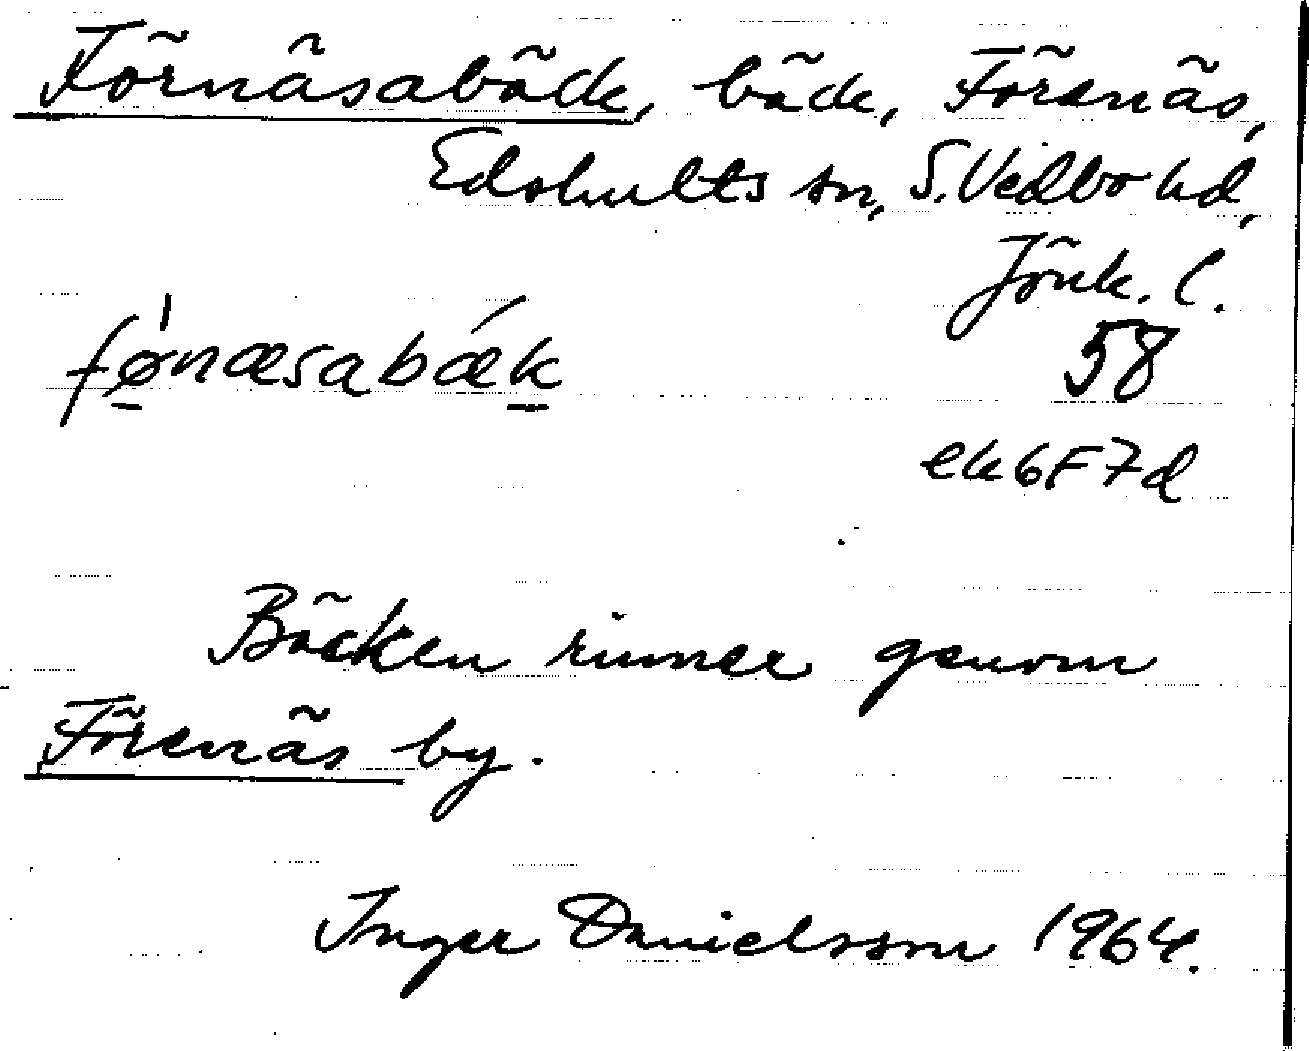 Förnäsabäck, bäck, Förenäs,
Edshults sn, S. Vedbo hd,
Jönk. l.
fø̱ˈnæsabǽḵ
58
ek 6F7d
Bäcken rinner genom
Förenäs by.
Inger Danielsson 1964.